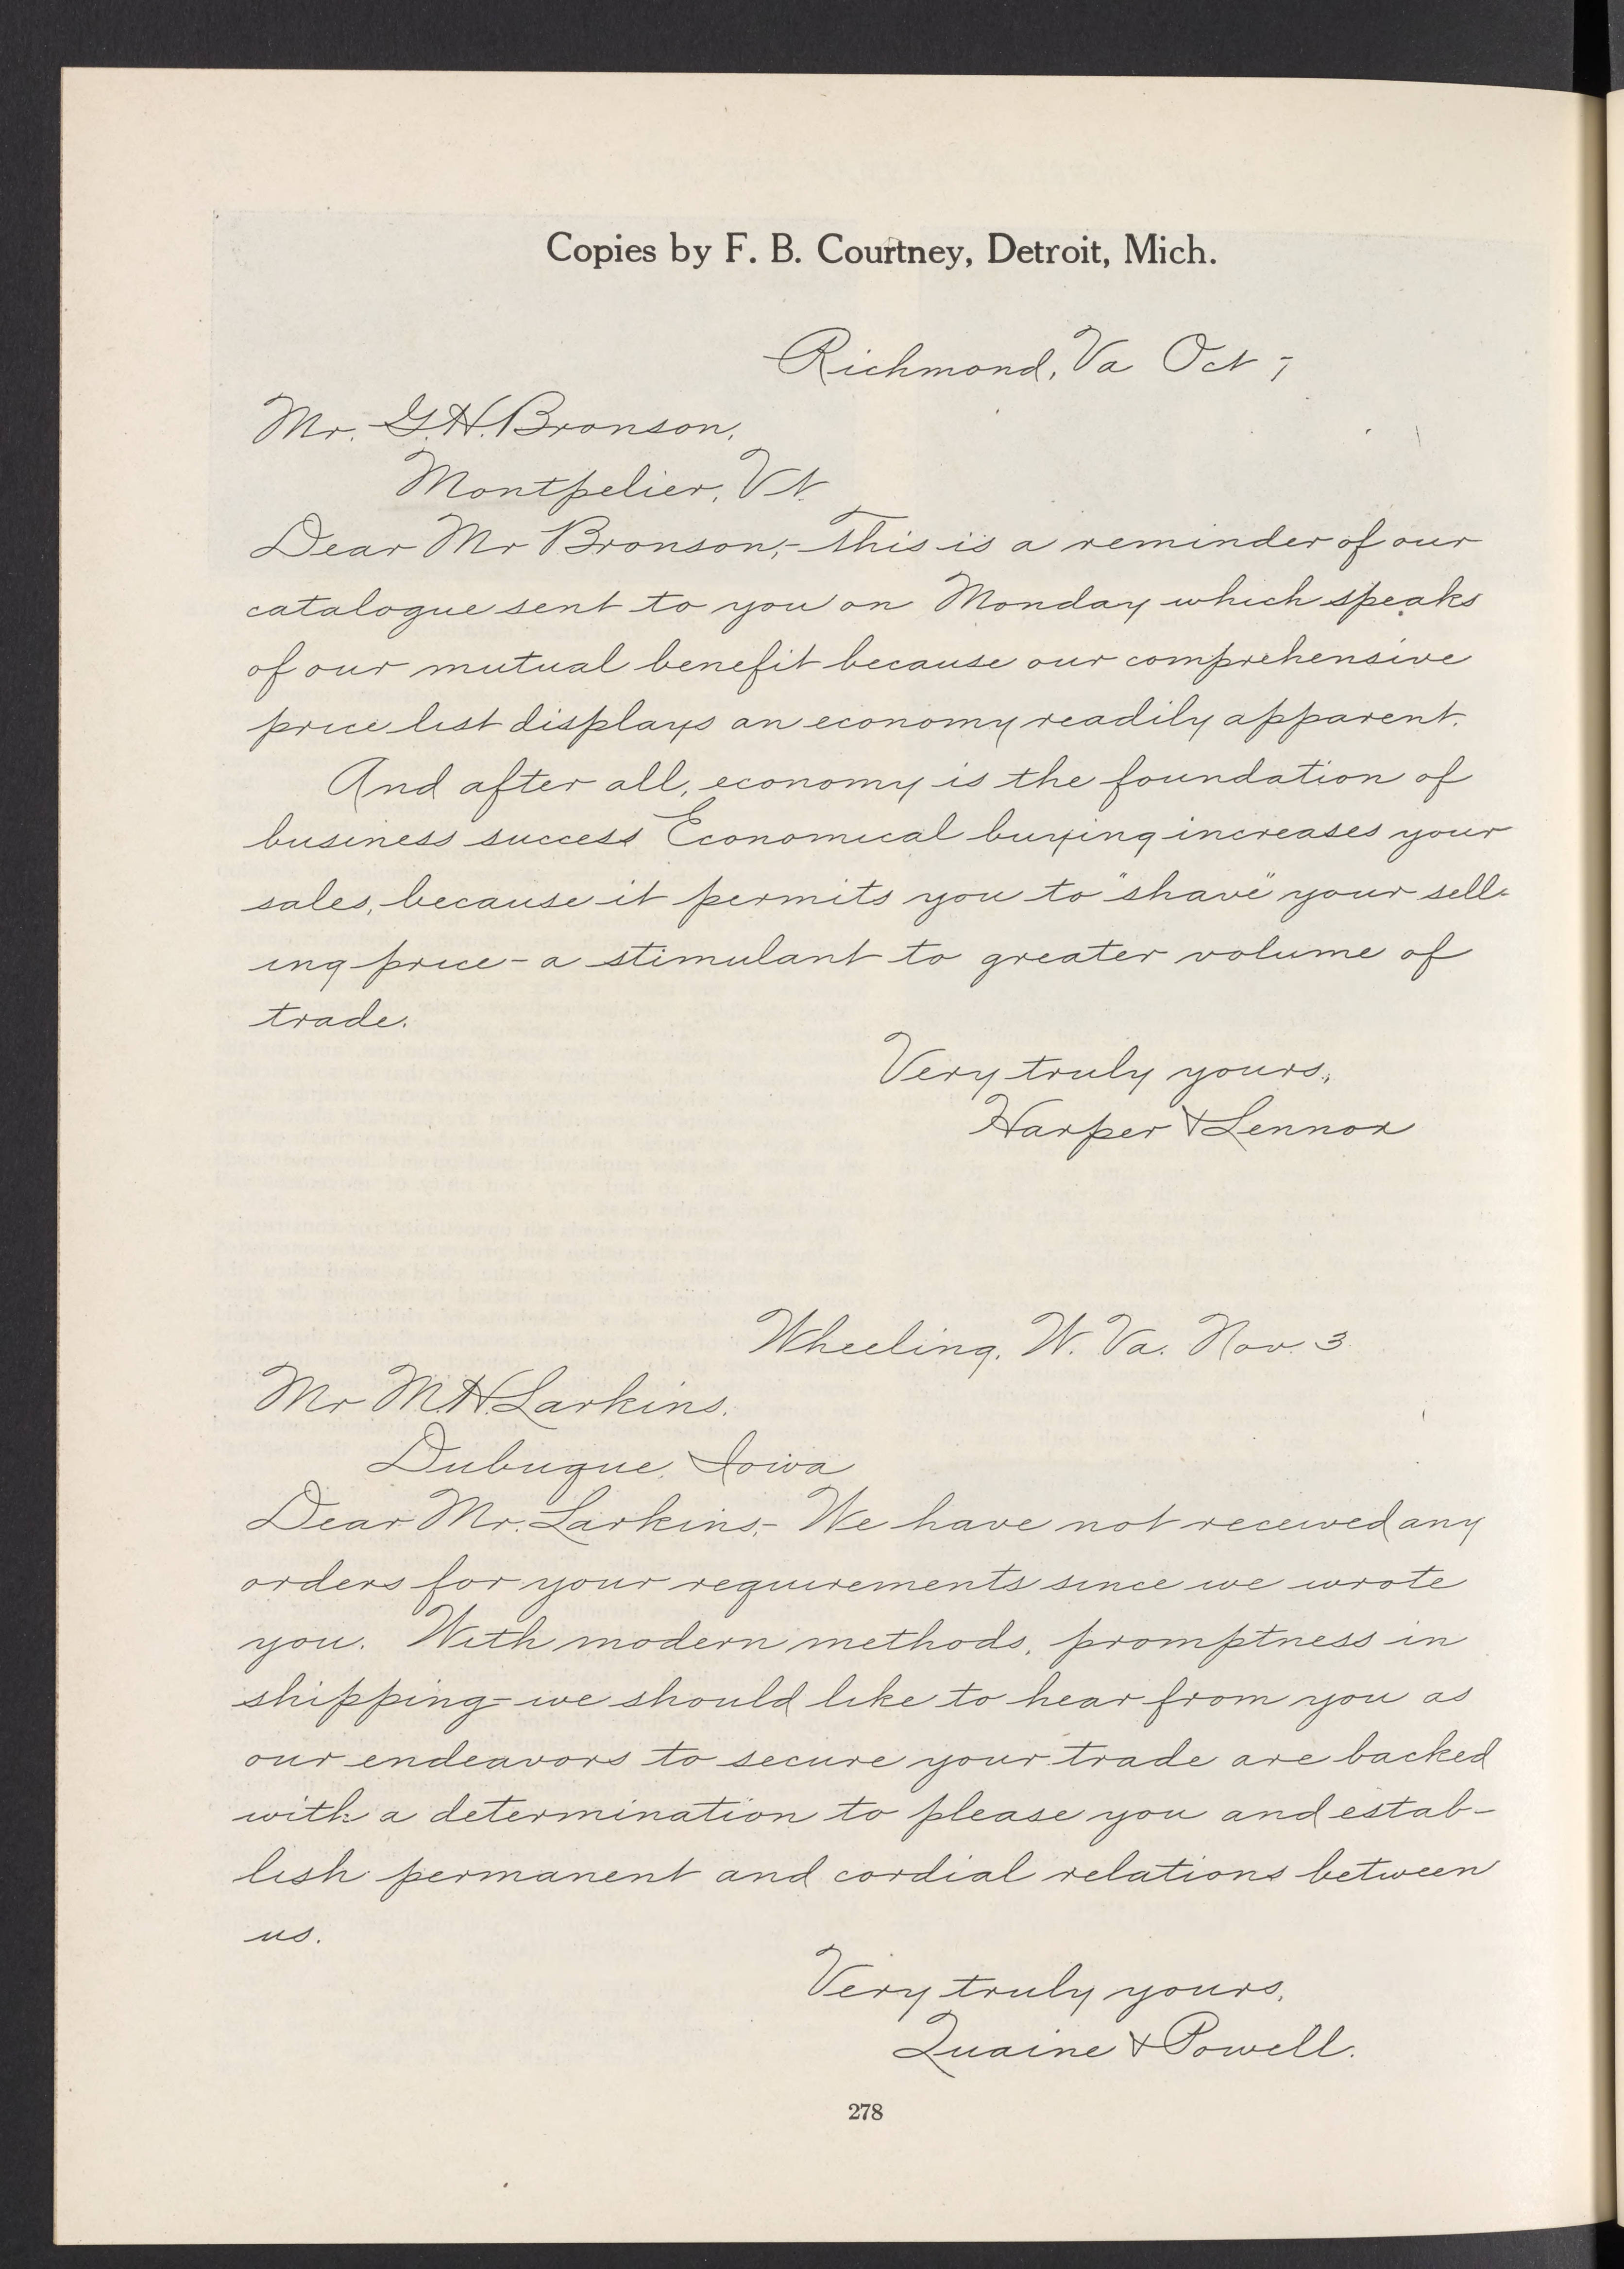 Copies by F. B. Courtney, Detroit, Mich.
Richmond, Va Oct 7
Mr. G. H. Bronson,
Montpelier, Vt.
Dear Mr Bronson;- This is a reminder of our
catalogue sent to you on Monday which speaks
of our mutual benefit because our comprehensive
price list displays an economy readily apparent.
And after all, economy is the foundation of
business success Economical buying increases your
sales, because it permits you to "shave" your sell-
ing price - a stimulant to greater volume of
trade.
Very truly yours,
Harper & Lennox
Wheeling, W. Va. Nov. 3
Mr M. H. Larkins.
Dubuque, Iowa
Dear Mr. Larkins,- We have not received any
orders for your requirements since we wrote
you. With modern methods, promptness in
shipping - we should like to hear from you as
our endeavors to secure your trade are backed
with a determination to please you and estab-
lish permanent and cordial relations between
us.
Very truly yours,
Quaine & Powell.
278